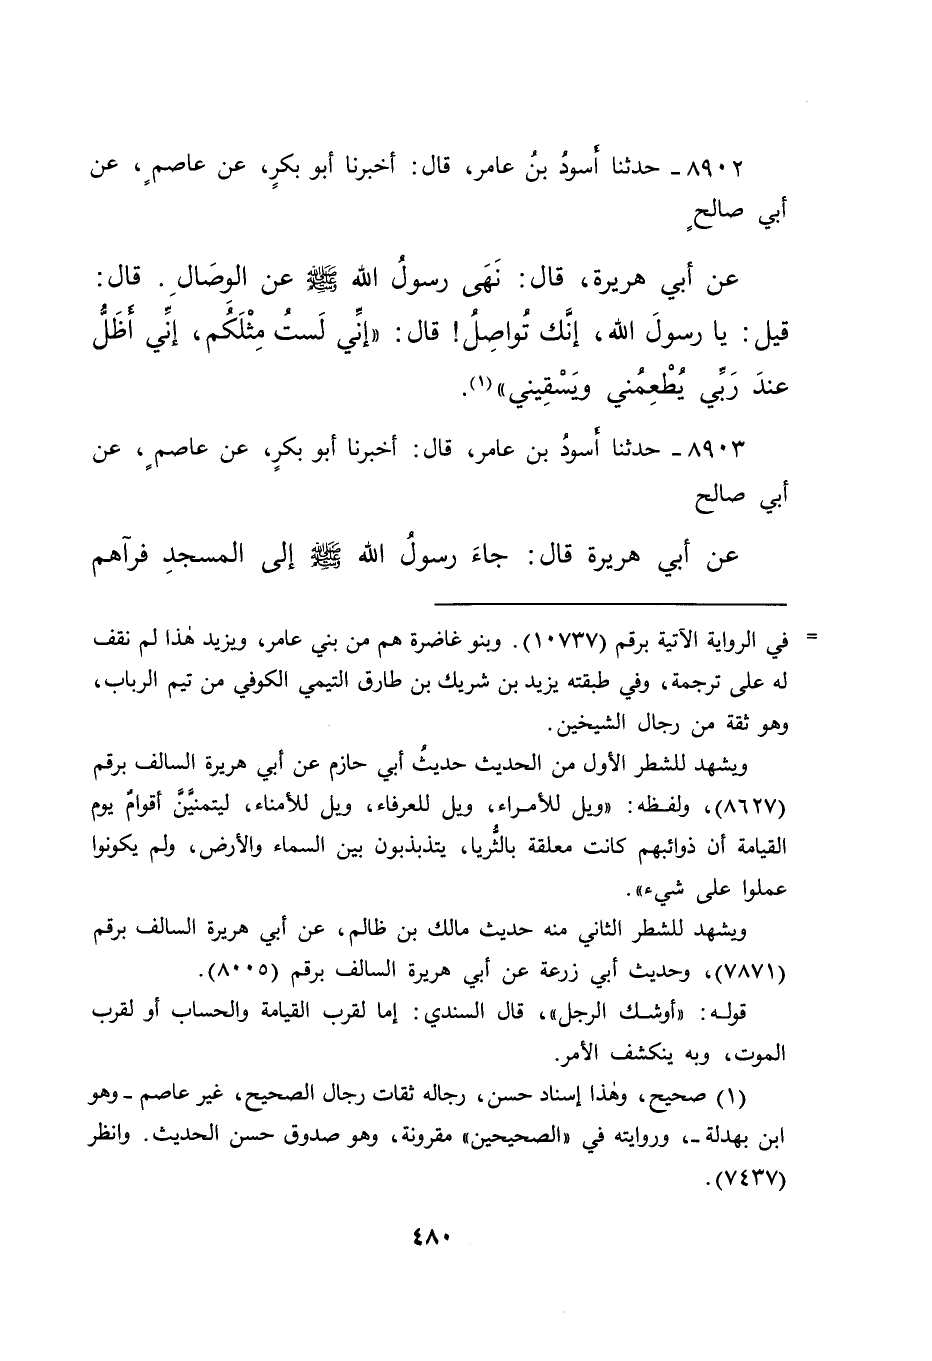 ٨٩٠٢ ـ حدثنا أَسودُ بنُ عامر، قال: أخبرنا أبو بكرٍ، عن عاصمٍ، عن
أبي صالحٍ
عن أبي هريرة، قال: نَهَى رسولُ الله ﷺ عن الوصَالِ. قال:
قيل: يا رسولَ الله، إنَّك تُواصِلُ! قال: «إنِّي لَستُ مِثْلَكُم، إنِّي أَظَلُّ
عندَ رَبِّي يُطْعِمُني ويَسْقِيني»(١).
٨٩٠٣ ـ حدثنا أَسودُ بن عامر، قال: أخبرنا أبو بكرٍ، عن عاصمٍ، عن
أبي صالح
عن أبي هريرة قال: جاءَ رسولُ الله ﷺ إلى المسجدِ فرآهم
= في الرواية الآتية برقم (١٠٧٣٧). وبنو غاضرة هم من بني عامر، ويزيد هٰذا لم نقف
له على ترجمة، وفي طبقته يزيد بن شريك بن طارق التيمي الكوفي من تيم الرباب،
وهو ثقة من رجال الشيخين.
ويشهد للشطر الأول من الحديث حديثُ أبي حازم عن أبي هريرة السالف برقم
(٨٦٢٧)، ولفظه: «ويل للأمراء، ويل للعرفاء، ويل للأمناء، ليتمنيَّنَّ أقوامٌ يوم
القيامة أن ذوائبهم كانت معلقة بالثُّريا، يتذبذبون بين السماء والأرض، ولم يكونوا
عملوا على شيء».
ويشهد للشطر الثاني منه حديث مالك بن ظالم، عن أبي هريرة السالف برقم
(٧٨٧١)، وحديث أبي زرعة عن أبي هريرة السالف برقم (٨٠٠٥).
قوله: «أوشك الرجل»، قال السندي: إما لقرب القيامة والحساب أو لقرب
الموت، وبه ينكشف الأمر.
(١) صحيح، وهٰذا إسناد حسن، رجاله ثقات رجال الصحيح، غير عاصم ـ وهو
ابن بهدلة ـ، وروايته في «الصحيحين» مقرونة، وهو صدوق حسن الحديث. وانظر
(٧٤٣٧).
٤٨٠